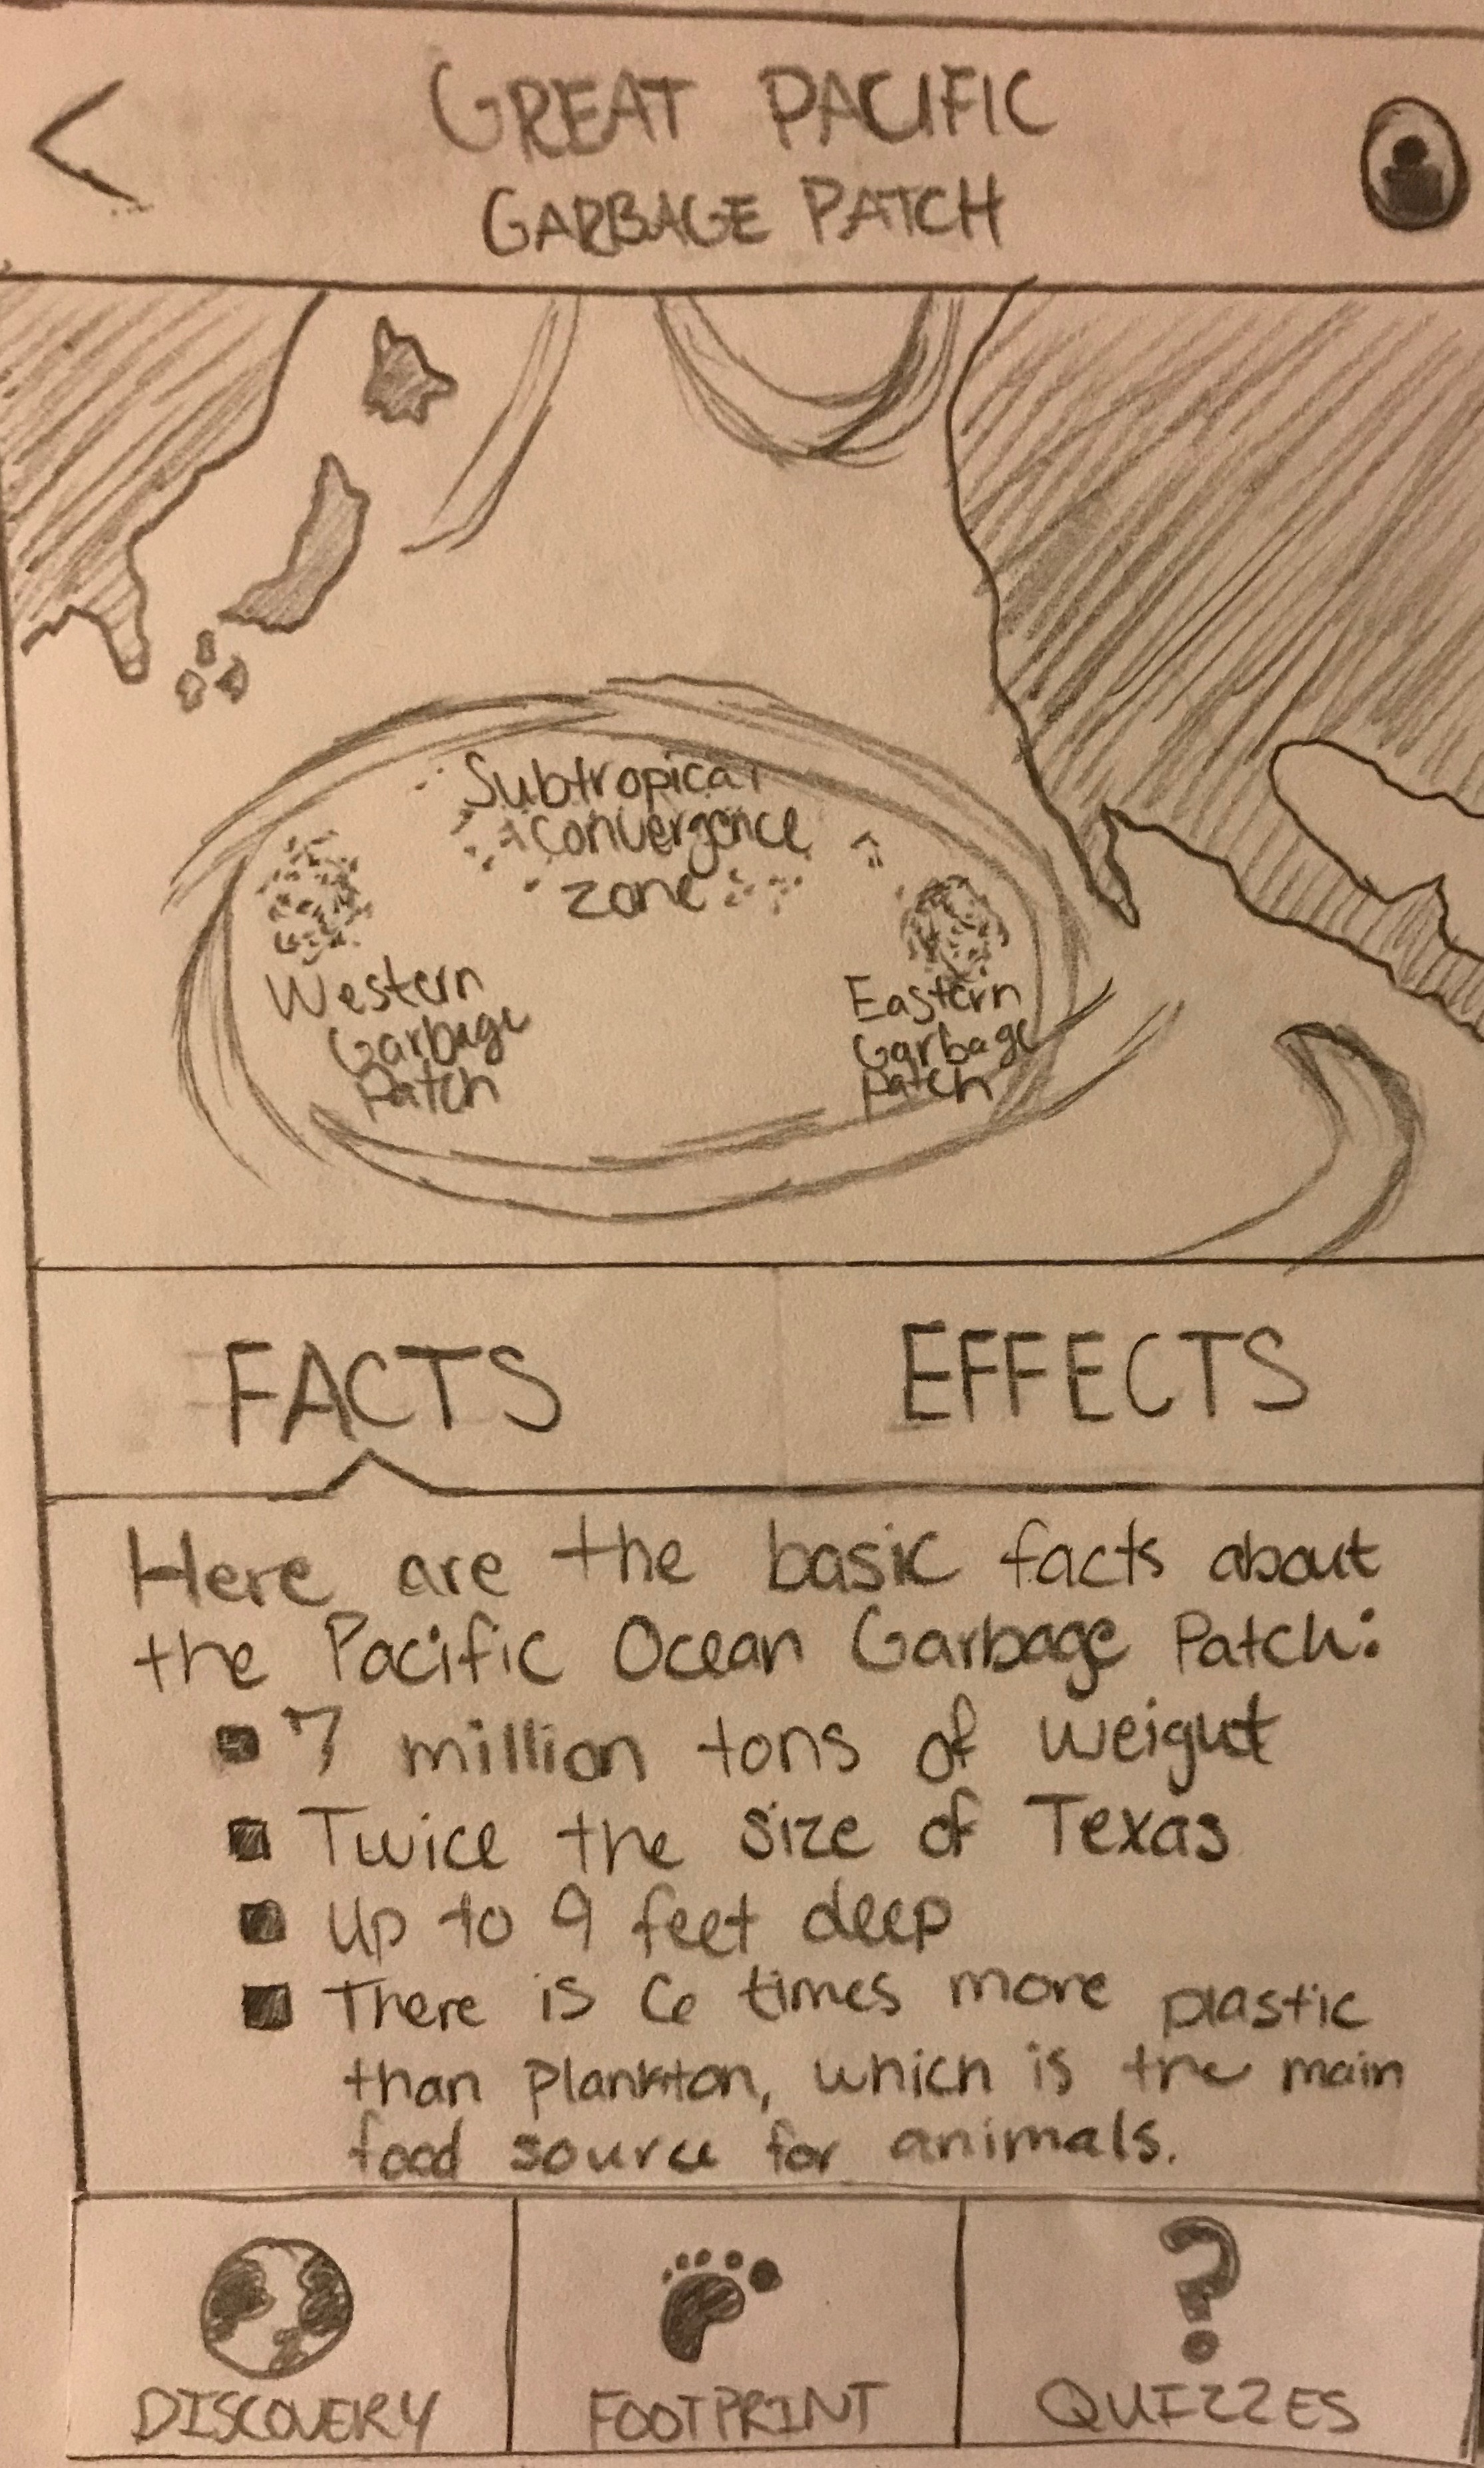 GREAT PACIFIC
GARBAGE PATCH
Subtropical
Convergence
Zone
Western
Garbage
Patch
Eastern
Garbage
Patch
FACTS
EFFECTS
Here are the basic facts about
the Pacific Ocean Garbage Patch:
■ 7 million tons of weight
■ Twice the size of Texas
■ Up to 9 feet deep
■ There is 6 times more plastic
than plankton, which is the main
food source for animals.
DISCOVERY
FOOTPRINT
?
QUIZZES